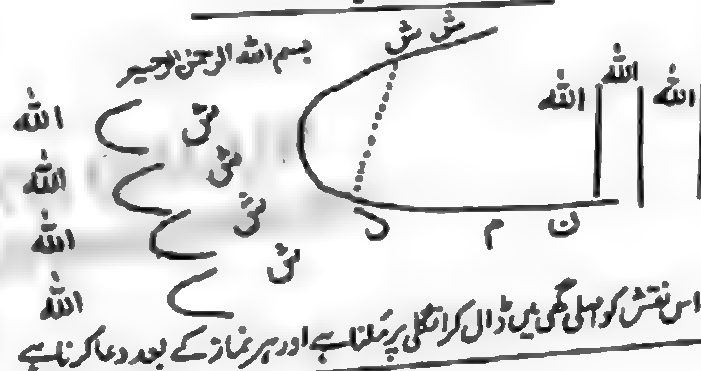 ش ش
بسم اللہ الرحمن الرحیم
اللہ اللہ اللہ
اللہ ش
اللہ ش
اللہ ش
اللہ ش
ن م د
اس نقش کو اصلی گھی میں ڈال کر انگلی پر مَلنا ہے اور ہر نماز کے بعد دعا کرنا ہے